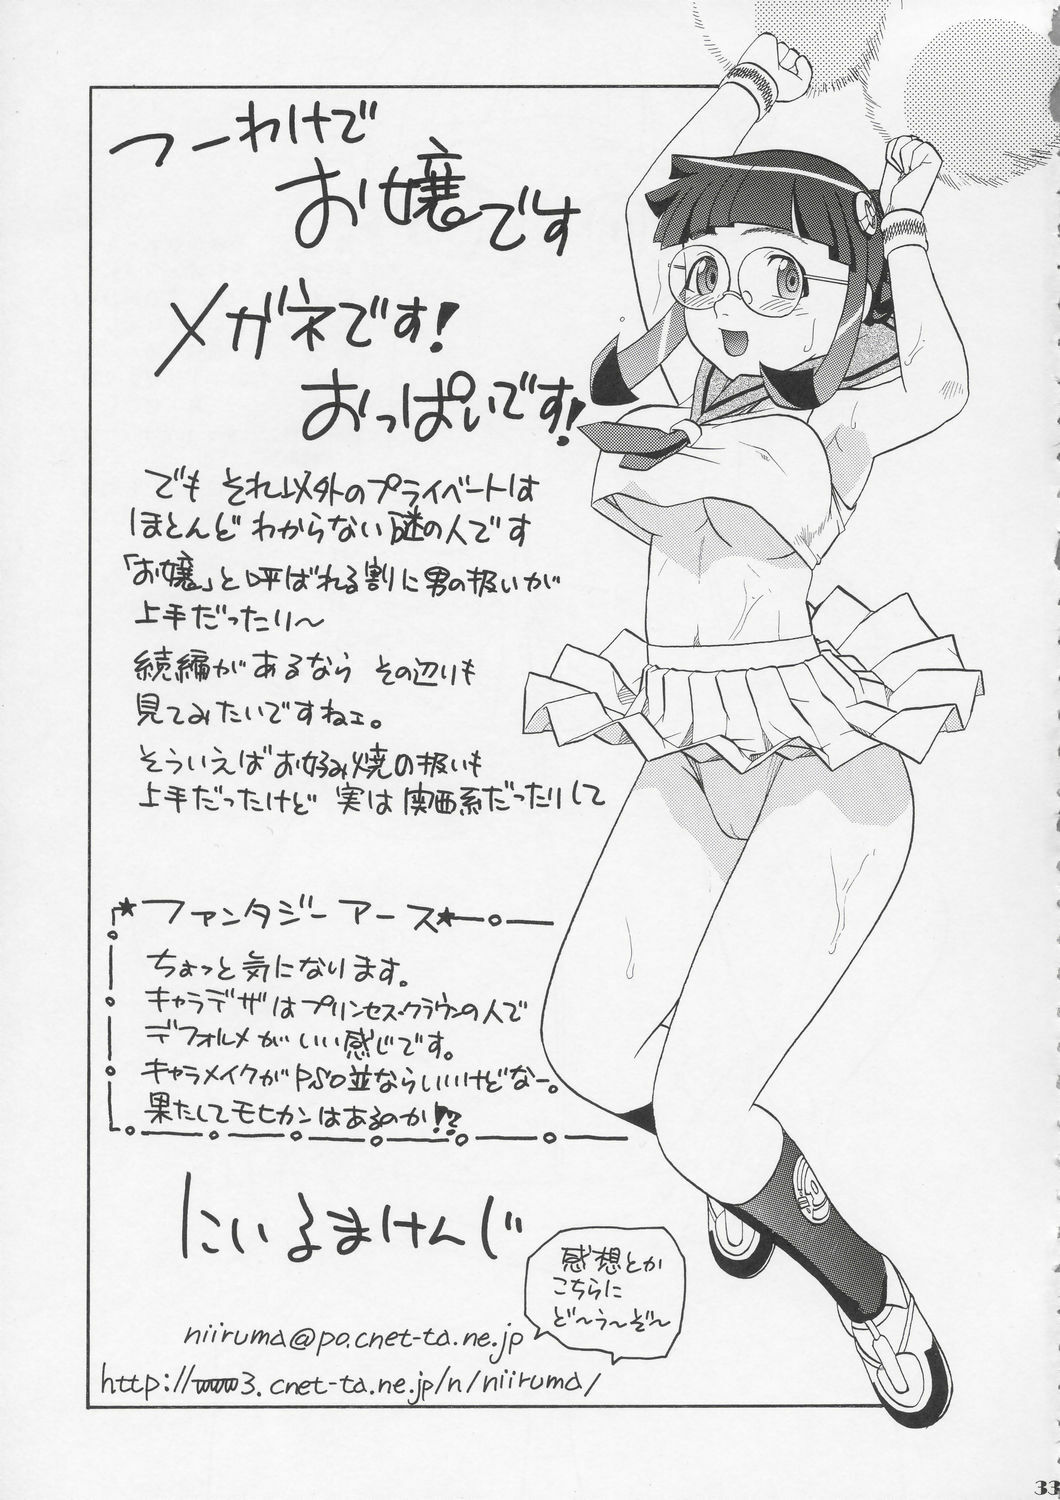 つーわけで
お嬢です
メガネです!
おっぱいです!
でも それ以外のプライベートは
ほとんど わからない謎の人です
「お嬢」と呼ばれる割に男の扱いが
上手だったり〜
続編があるなら その辺りも
見てみたいですねェ。
そういえばお好み焼の扱いも
上手だったけど 実は関西系だったりして
★ファンタジーアース★
ちょっと気になります。
キャラデザはプリンセス・クラウンの人で
デフォルメがいい感じです。
キャラメイクがPSO並ならいいけどなー。
果たしてモヒカンはあるのか!?
にいるまけんじ
感想とか
こちらに
ど〜う〜ぞ〜
niiruma@po.cnet-ta.ne.jp
http://www3.cnet-ta.ne.jp/n/niiruma/
33